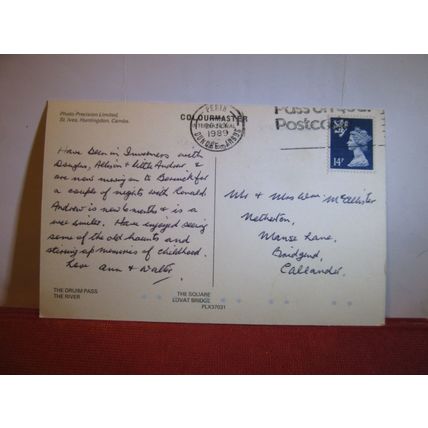 Photo Precision Limited,
St. Ives, Huntingdon, Cambs.
COLOURMASTER
INTERNATIONAL
PERTH
1989
Pass on your
Postcode
14P
Have been in Inverness with
Douglas, Alison & little Andrew. &
are now moving on to Berwick for
a couple of nights with Ronald.
Andrew is now 6 months & is a
wee smiler. Have enjoyed seeing
some of the old haunts and
stirring up memories of childhood.
Love Ann & Walter
Mr & Mrs Wm McAllister
Netherton,
Manse Lane,
Bridgend,
Callander.
THE DRUIM PASS
THE RIVER
THE SQUARE
LOVAT BRIDGE
PLX37031